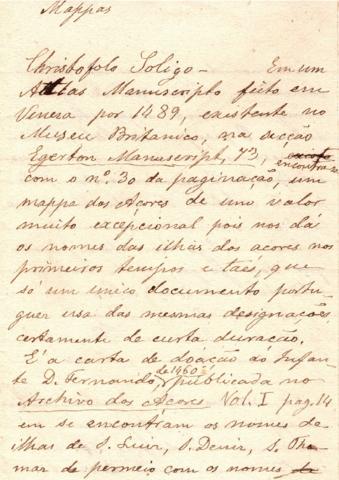 Mappas
Christofolo Soligo – Em um
Atlas Manuscripto feito em
Veneza por 1489, existente no
Museu Britanico, na secção
Egerton Manuscript, 73,
encontra-se
com o nº 30 da paginação, um
mappa dos Açores de um valor
muito excepcional pois nos dá
os nomes das ilhas dos açores nos
primeiros tempos e taes, que
só um unico documento portu-
guez usa das mesmas designações,
certamente de curta duração.
É a carta de doação ao Infan-
de 1460
te D. Fernando, publicada no
Archivo dos Açores Vol. I pag. 14
em se encontram os nomes de
ilhas de S. Luiz, S. Deniz, S. Tho-
mar de permeio com os nomes de